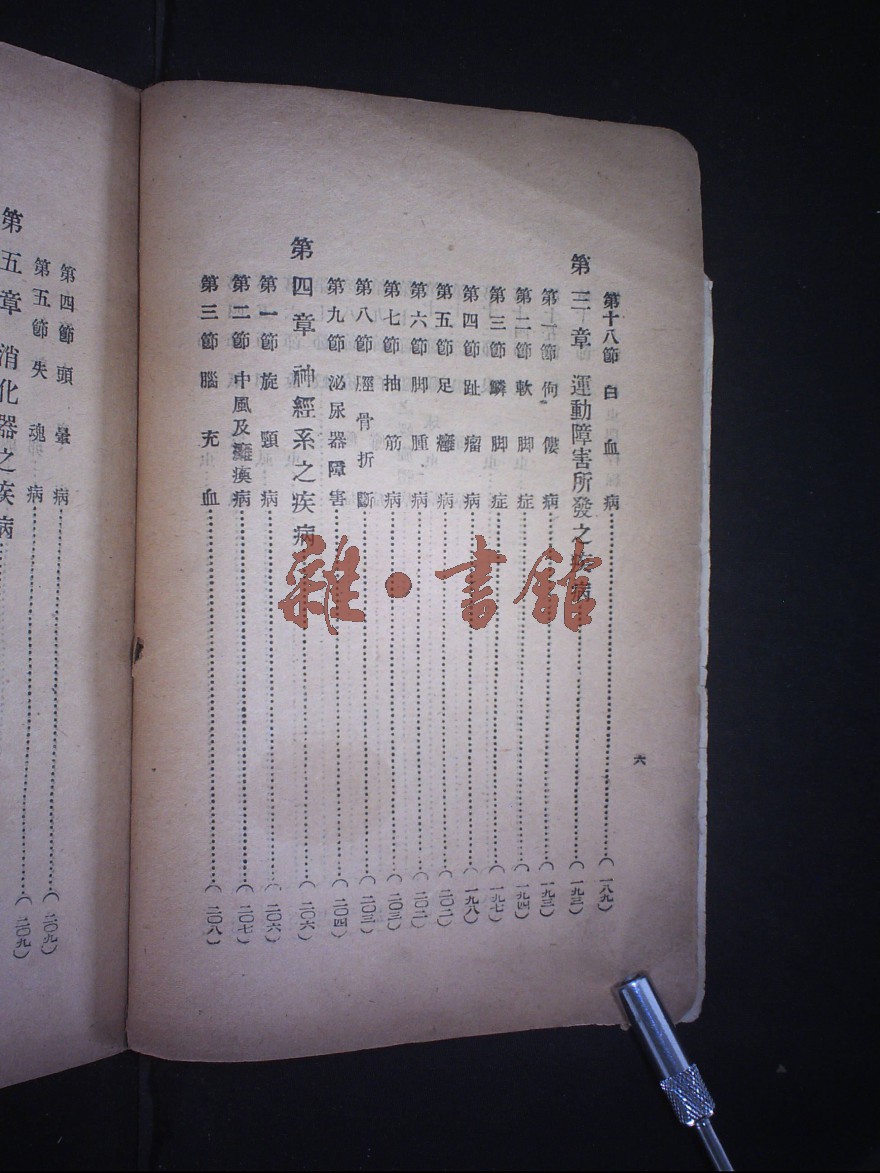 第十八節 白血病……(一八九)
第三章 運動障害所發之疾病……(一九三)
第一節 佝僂病……(一九三)
第二節 軟脚症……(一九四)
第三節 鱗脚症……(一九七)
第四節 趾瘤病……(一九八)
第五節 足癰病……(二〇二)
第六節 脚腫病……(二〇二)
第七節 抽筋病……(二〇三)
第八節 脛骨折斷……(二〇三)
第九節 泌尿器障害……(二〇四)
第四章 神經系之疾病……(二〇六)
第一節 旋頸病……(二〇六)
第二節 中風及癱瘓病……(二〇七)
第三節 腦充血……(二〇八)
六
第四節 頭暈病……(二〇九)
第五節 失魂病……(二〇九)
第五章 消化器之疾病
雜·書館